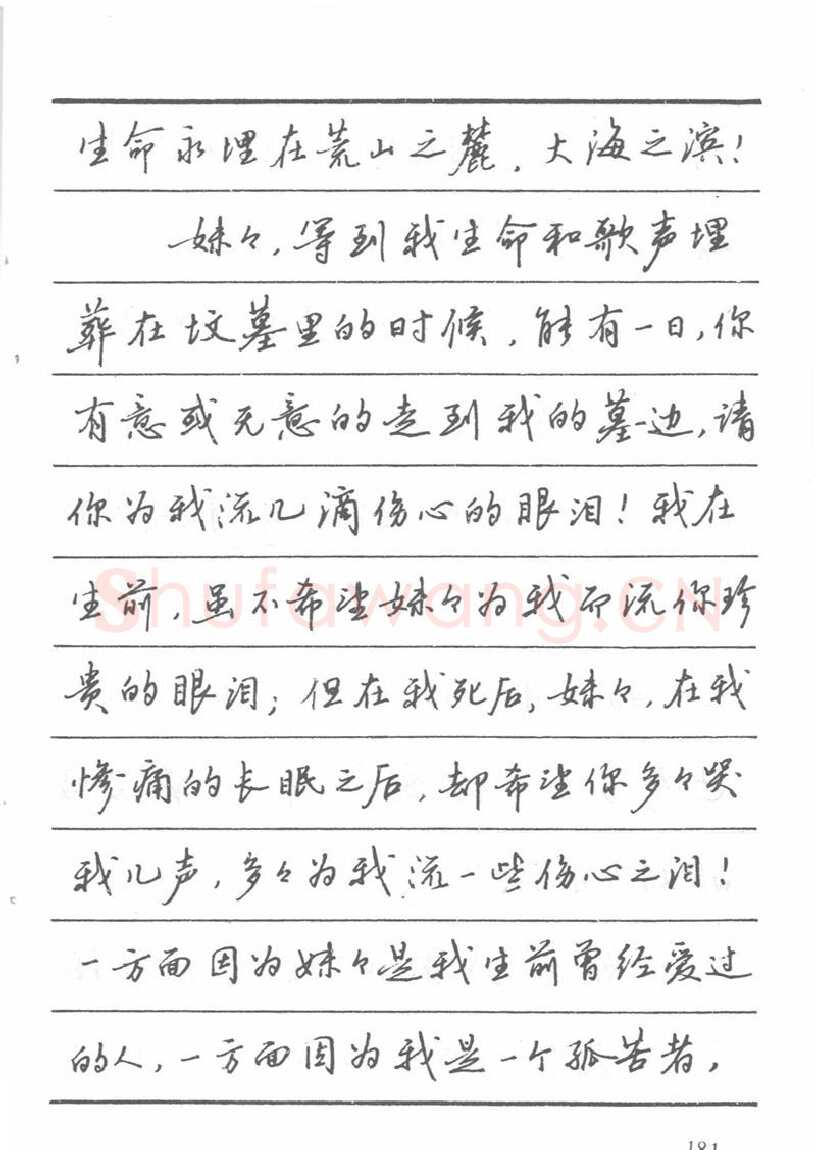 生命永埋在荒山之麓，大海之滨！
妹々，等到我生命和歌声埋
葬在坟墓里的时候，能有一日，你
有意或无意的走到我的墓边，请
你为我流几滴伤心的眼泪！我在
生前，虽不希望妹々为我而流你珍
贵的眼泪；但在我死后，妹々，在我
惨痛的长眠之后，却希望你多々哭
我几声，多々为我流一些伤心之泪！
一方面因为妹々是我生前曾经爱过
的人，一方面因为我是一个孤苦者，
Shufawang.CN
181